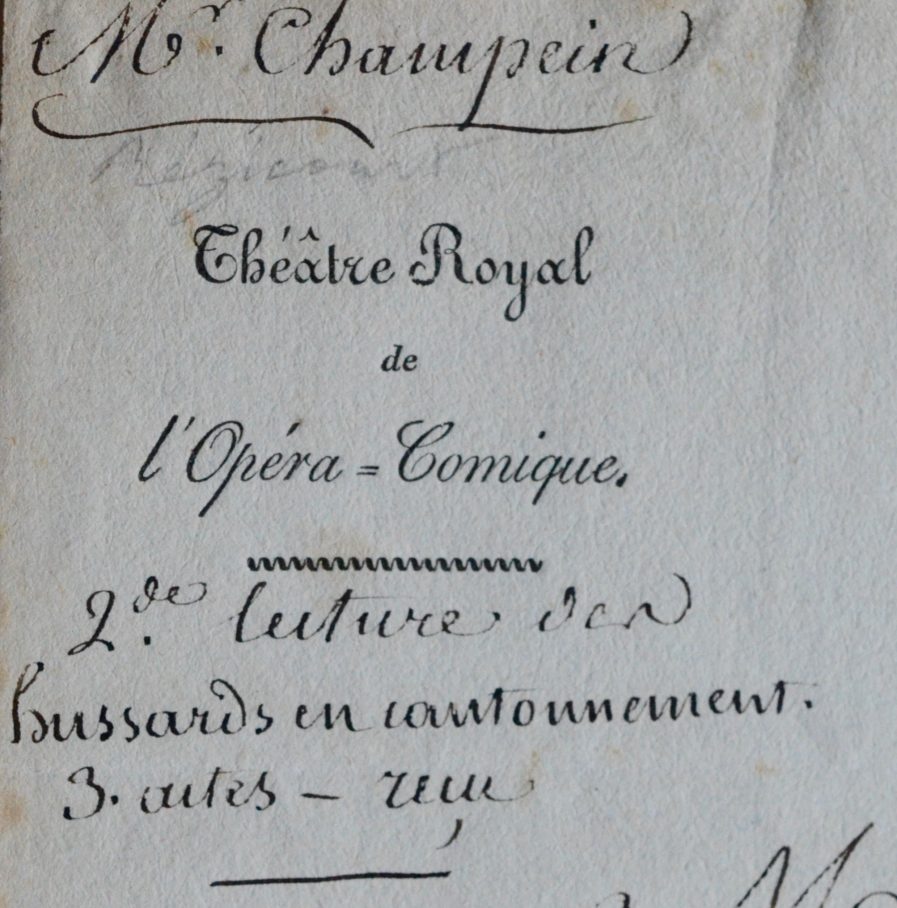 Mr. Champein
Théâtre Royal
de
l'Opéra=Comique.
2.de lecture des
hussards en cantonnement.
3. actes – reçu